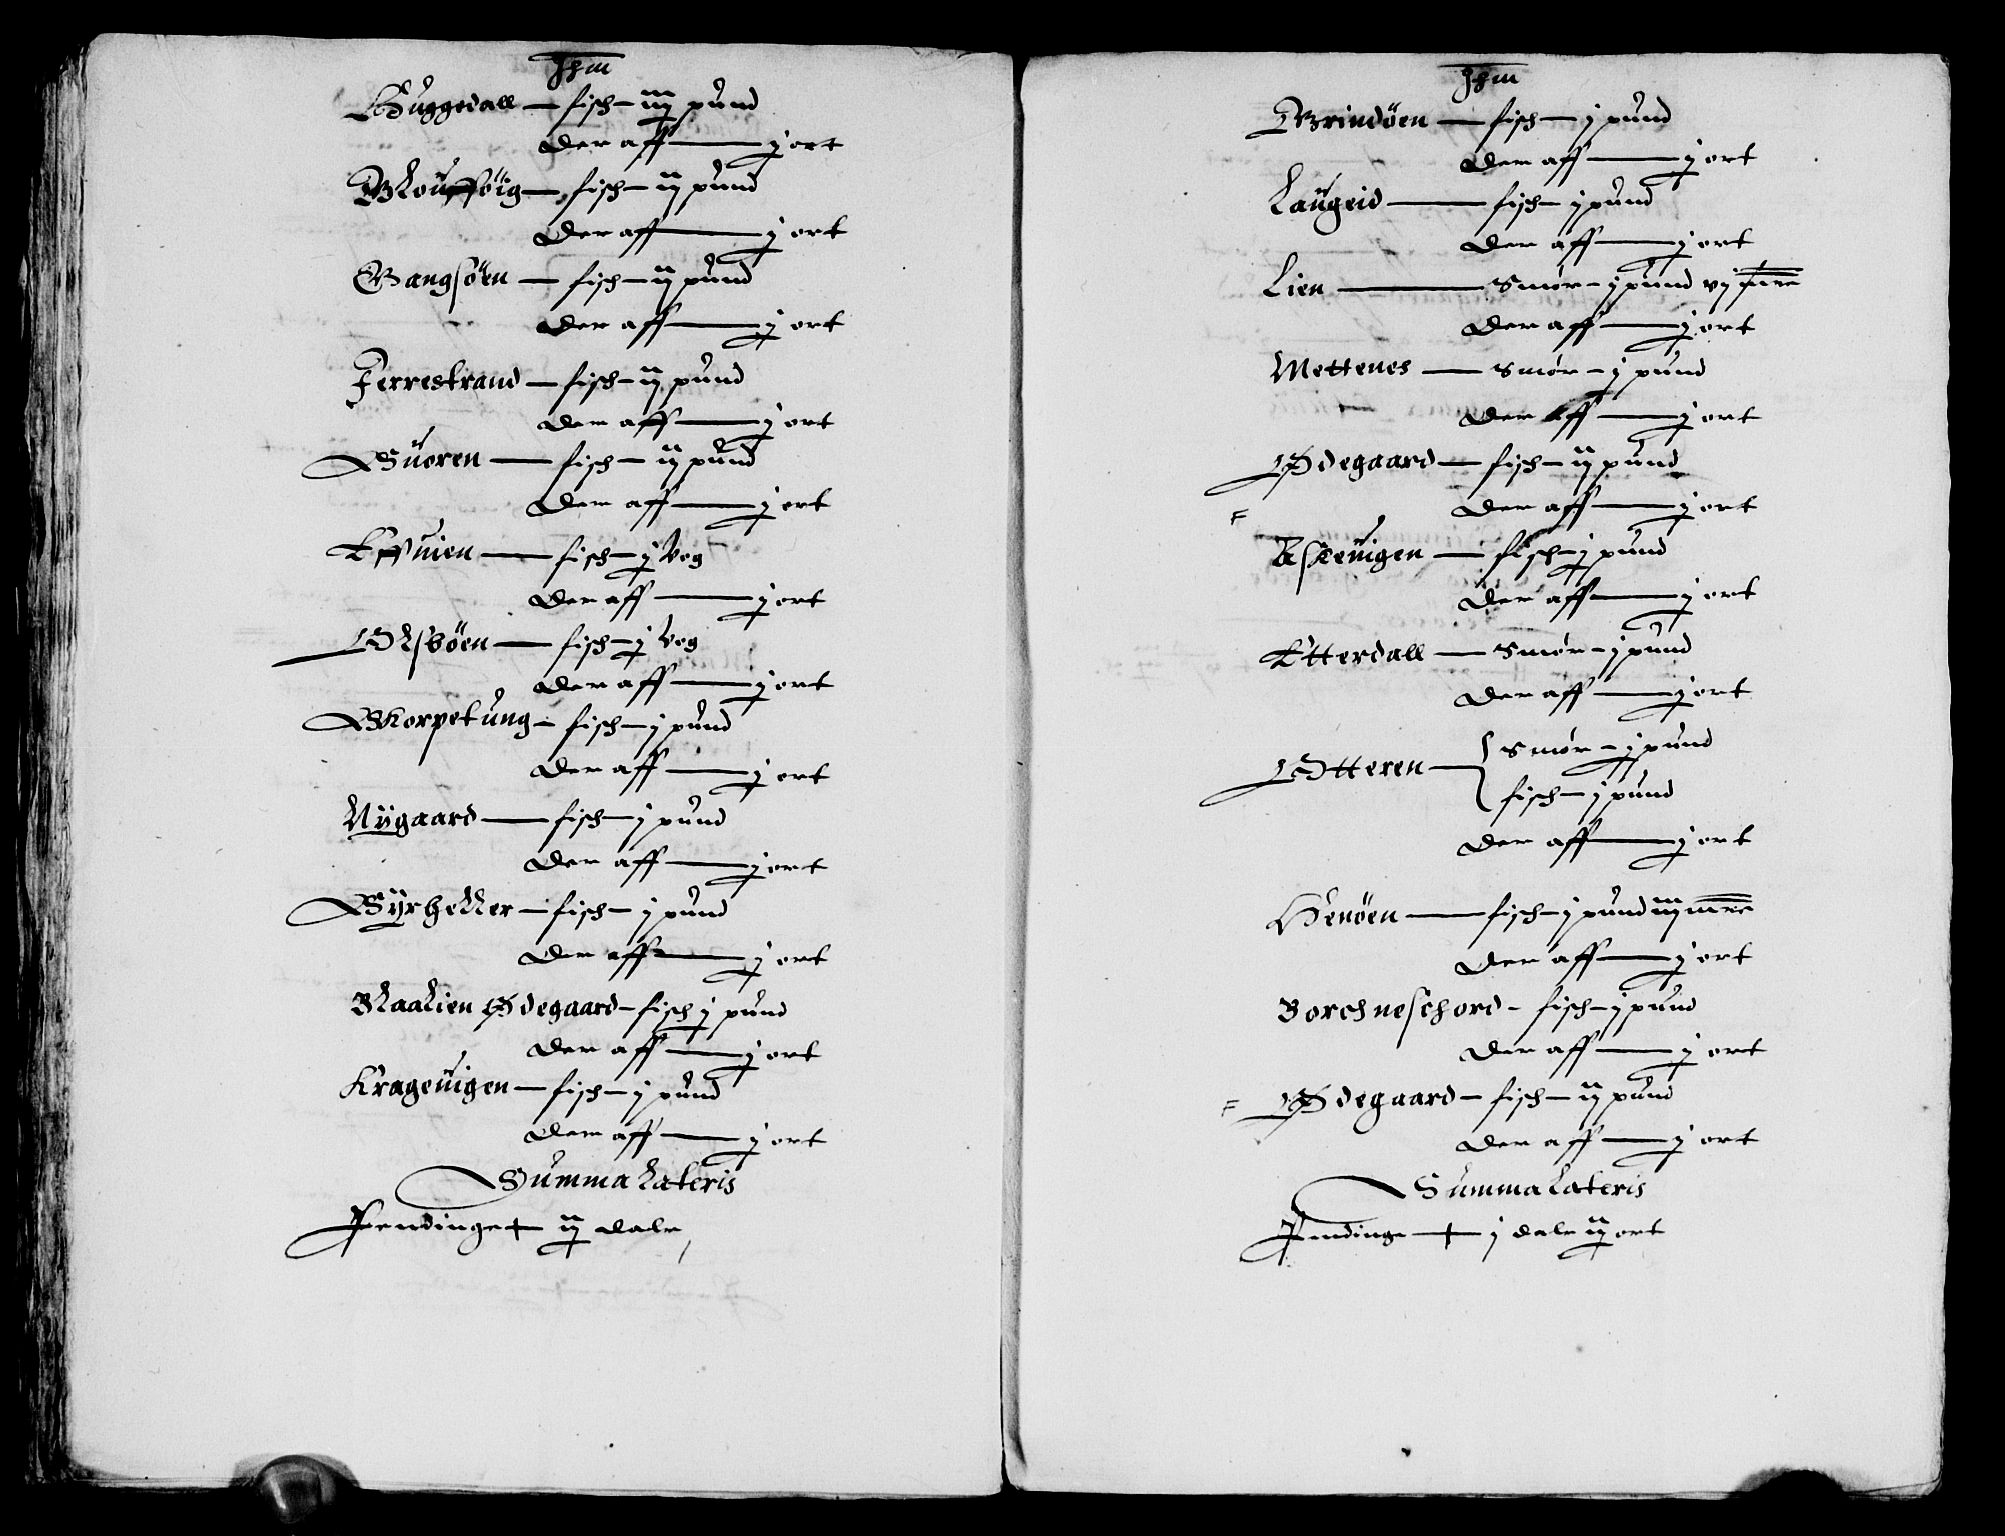 Jhm
Huggedall — fisch — iij pund
Der aff — j ort
Skouffsöig — fisch — ij pund
Der aff — j ort
Gangsöen — fisch — ij pund
Der aff — j ort
Ferrestrand — fisch — ij pund
Der aff — j ort
Buoren — fisch — ij pund
Der aff — j ort
Effuien — fisch — j Vog
Der aff — j ort
Olsböen — fisch — j Vog
Der aff — j ort
Skorpetung — fisch — j pund
Der aff — j ort
Nÿgaard — fisch — j pund
Der aff — j ort
Bÿrkeller — fisch — j pund
Der aff — j ort
Blaalien Ødegaard — fisch j pund
Der aff — j ort
Krageuigen — fisch — j pund
Der aff — j ort
Summa Lateris
Pendinge — ij dalr
Jhm
Grindöen — fisch — j pund
Der aff — j ort
Laugeid — fisch — j pund
Der aff — j ort
Lien — Smør — j pund vj mrc
Der aff — j ort
Mettenes — Smør — j pund
Der aff — j ort
Ødegaard — fisch — ij pund
Der aff — j ort
Askeuigen — fisch — j pund
Der aff — j ort
Etterdall — Smør — j pund
Der aff — j ort
Otteren — Smør — j pund
fisch — j pund
Der aff — j ort
Henöen — fisch — j pund iij mrc
Der aff — j ort
Borchneschord — fisch — j pund
Der aff — j ort
Ødegaard — fisch — ij pund
Der aff — j ort
Summa Lateris
Pendinge — j dalr ij ort